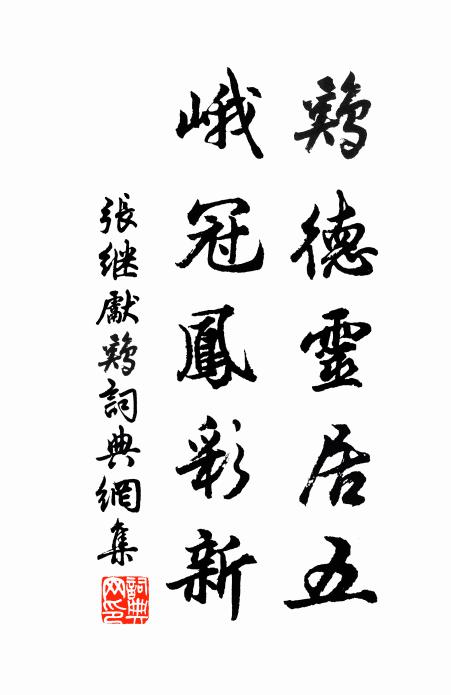 鷄德靈居五
峨冠鳳彩新
張继獻鷄詞典網集
詞典
網印